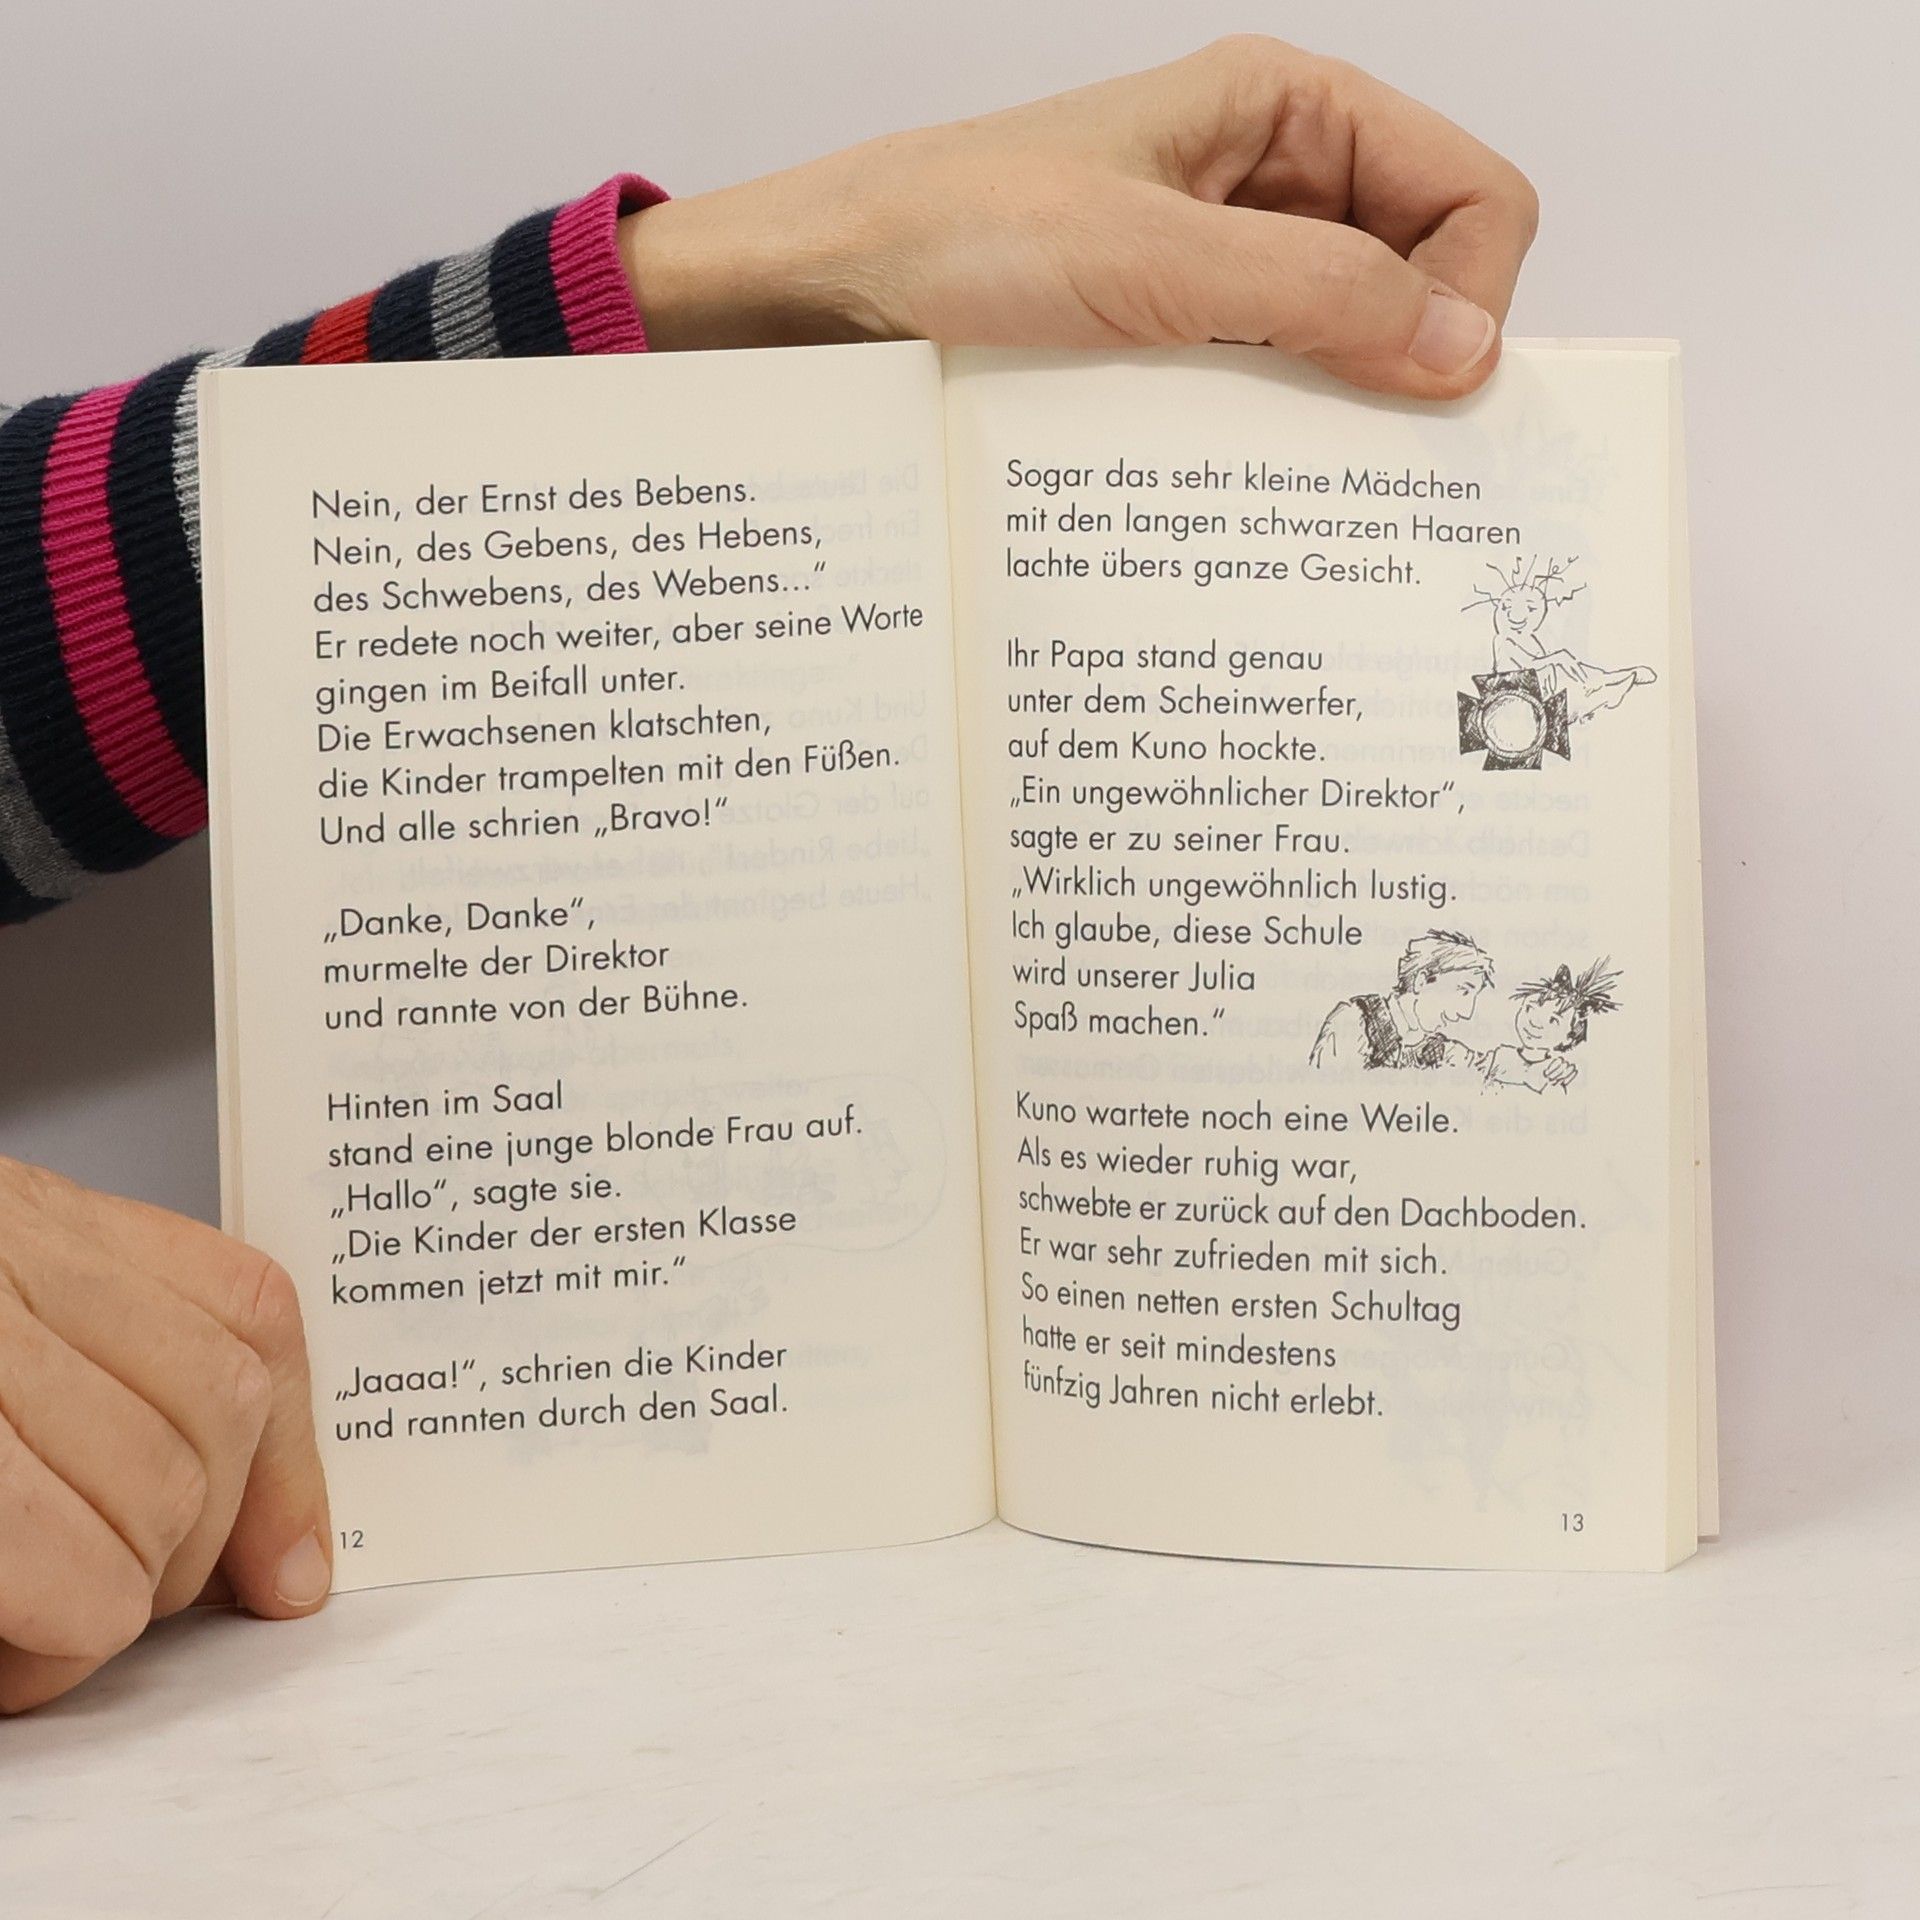 Nein, der Ernst des Bebens.
Nein, des Gebens, des Hebens,
des Schwebens, des Webens...“
Er redete noch weiter, aber seine Worte
gingen im Beifall unter.
Die Erwachsenen klatschten,
die Kinder trampelten mit den Füßen.
Und alle schrien „Bravo!“
„Danke, Danke“,
murmelte der Direktor
und rannte von der Bühne.
Hinten im Saal
stand eine junge blonde Frau auf.
„Hallo“, sagte sie.
„Die Kinder der ersten Klasse
kommen jetzt mit mir.“
„Jaaaa!“, schrien die Kinder
und rannten durch den Saal.
12
Sogar das sehr kleine Mädchen
mit den langen schwarzen Haaren
lachte übers ganze Gesicht.
Ihr Papa stand genau
unter dem Scheinwerfer,
auf dem Kuno hockte.
„Ein ungewöhnlicher Direktor“,
sagte er zu seiner Frau.
„Wirklich ungewöhnlich lustig.
Ich glaube, diese Schule
wird unserer Julia
Spaß machen.“
Kuno wartete noch eine Weile.
Als es wieder ruhig war,
schwebte er zurück auf den Dachboden.
Er war sehr zufrieden mit sich.
So einen netten ersten Schultag
hatte er seit mindestens
fünfzig Jahren nicht erlebt.
13